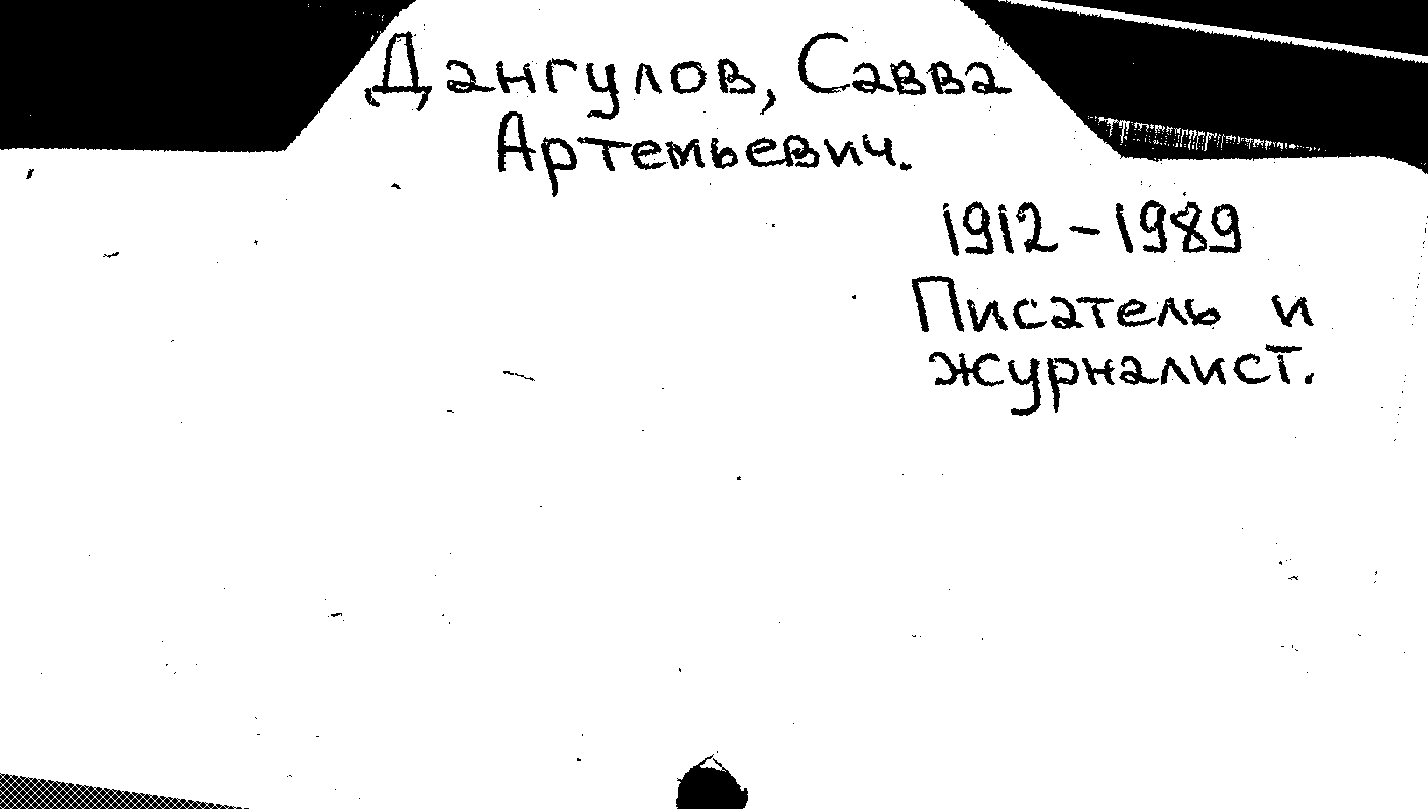 Дангулов, Савва
Артемьевич.
1912-1989
Писатель и
журналист.